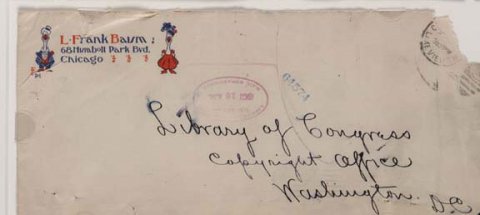 L. Frank Baum
68 Humbolt Park Bvd.
Chicago
61574
Library of Congress
Copyright Office
Washington D.C.